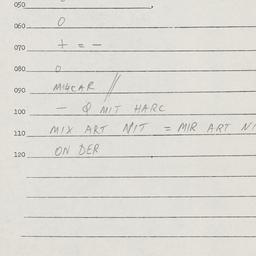 050
060 O
070 + = -
080 O
090 MI4CAR //
100 - Q MIT HARC
110 MIX ART NIT = MIR ART NI
120 ON DER